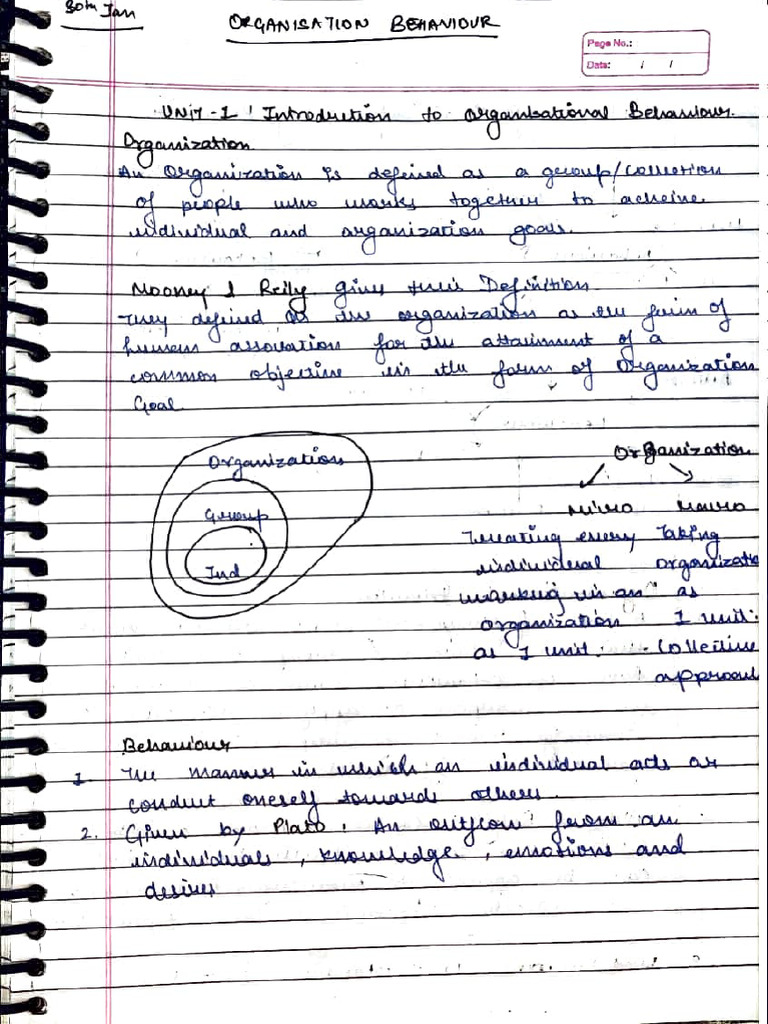 30th Jan
ORGANISATION BEHAVIOUR
Page No.:
Date: / /
UNIT-1 : Introduction to Organisational Behaviour.
Organization
An Organization is defined as a group/collection
of people who works together to acheive
individual and organization goals.
Mooney & Reily gives their Definition
They defined as the organization as the form of
human association for the attainment of a
common objective in the form of Organization
Goal
Organization
Group
Ind
Organization
Micro Macro
Treating every Taking
individual organizatio
working in an as
organization 1 unit.
as 1 unit. Collective
approach
Behaviour
1. The manner in which an individual acts or
conduct oneself towards others.
2. Given by Plato. An outflow from an
individuals, knowledge, emotions and
desires